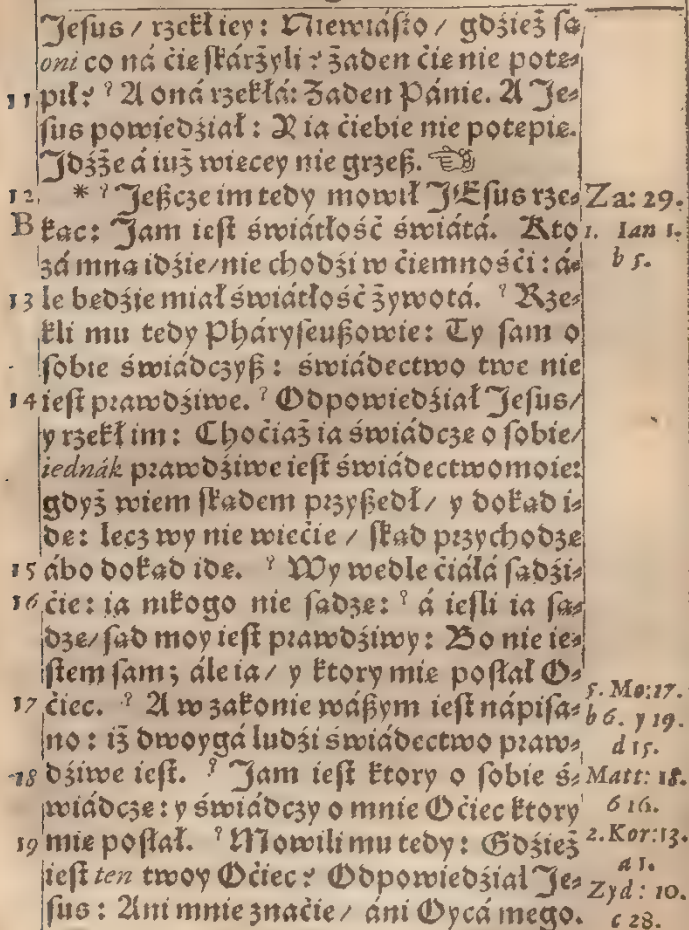 Jesus / rzekł iey: Niewiásto / gdźież są
oni co ná ćie skárżyli? żaden ćie nie potę-
11 pił? A oná rzekłá: Żaden Pánie. A Je-
sus powiedźiał: Y ia ćiebie nie potępię.
Jdźże á iuż więcey nie grzeß.
12 * Jeßcze im tedy mowił JEsus rze- Za: 29.
B kąc: Jam iest świátłość świátá. Kto 1. Ian 1.
zá mną idźie/nie chodźi w ćiemnośći: á- b 5.
13 le będźie miał świátłość żywotá. Rze-
kli mu tedy Pháryseußowie: Ty sam o
sobie świádczyß: świádectwo twe nie
14 iest prawdźiwe. Odpowiedźiał Jesus/
y rzekł im: Choćiaż ia świádczę o sobie/
iednák prawdźiwe iest świádectwo moie:
gdyż wiem skądem przyßedł/ y dokąd i-
dę: lecz wy nie wiećie / skąd przychodzę
15 ábo dokąd idę. Wy wedle ćiáłá sądźi-
16 ćie: ia nikogo nie sądzę: á iesli ia są-
dzę/ sąd moy iest prawdźiwy: Bo nie ie-
stem sam; ále ia/ y ktory mię posłał O-
17 ćiec. A w zakonie wáßym iest nápisa- 5. Mo:17. b 6. y 19.
no: iż dwoygá ludźi świádectwo praw- d 15.
18 dźiwe iest. Jam iest ktory o sobie ś- Matt: 18.
wiádczę: y świádczy o mnie Oćiec ktory 6 16.
19 mię posłał. Mowili mu tedy: Gdźież 2. Kor:13. a 1.
iest ten twoy Oćiec? Odpowiedźiał Je- Zyd: 10.
sus: Ani mnie znaćie / áni Oycá mego. c 28.